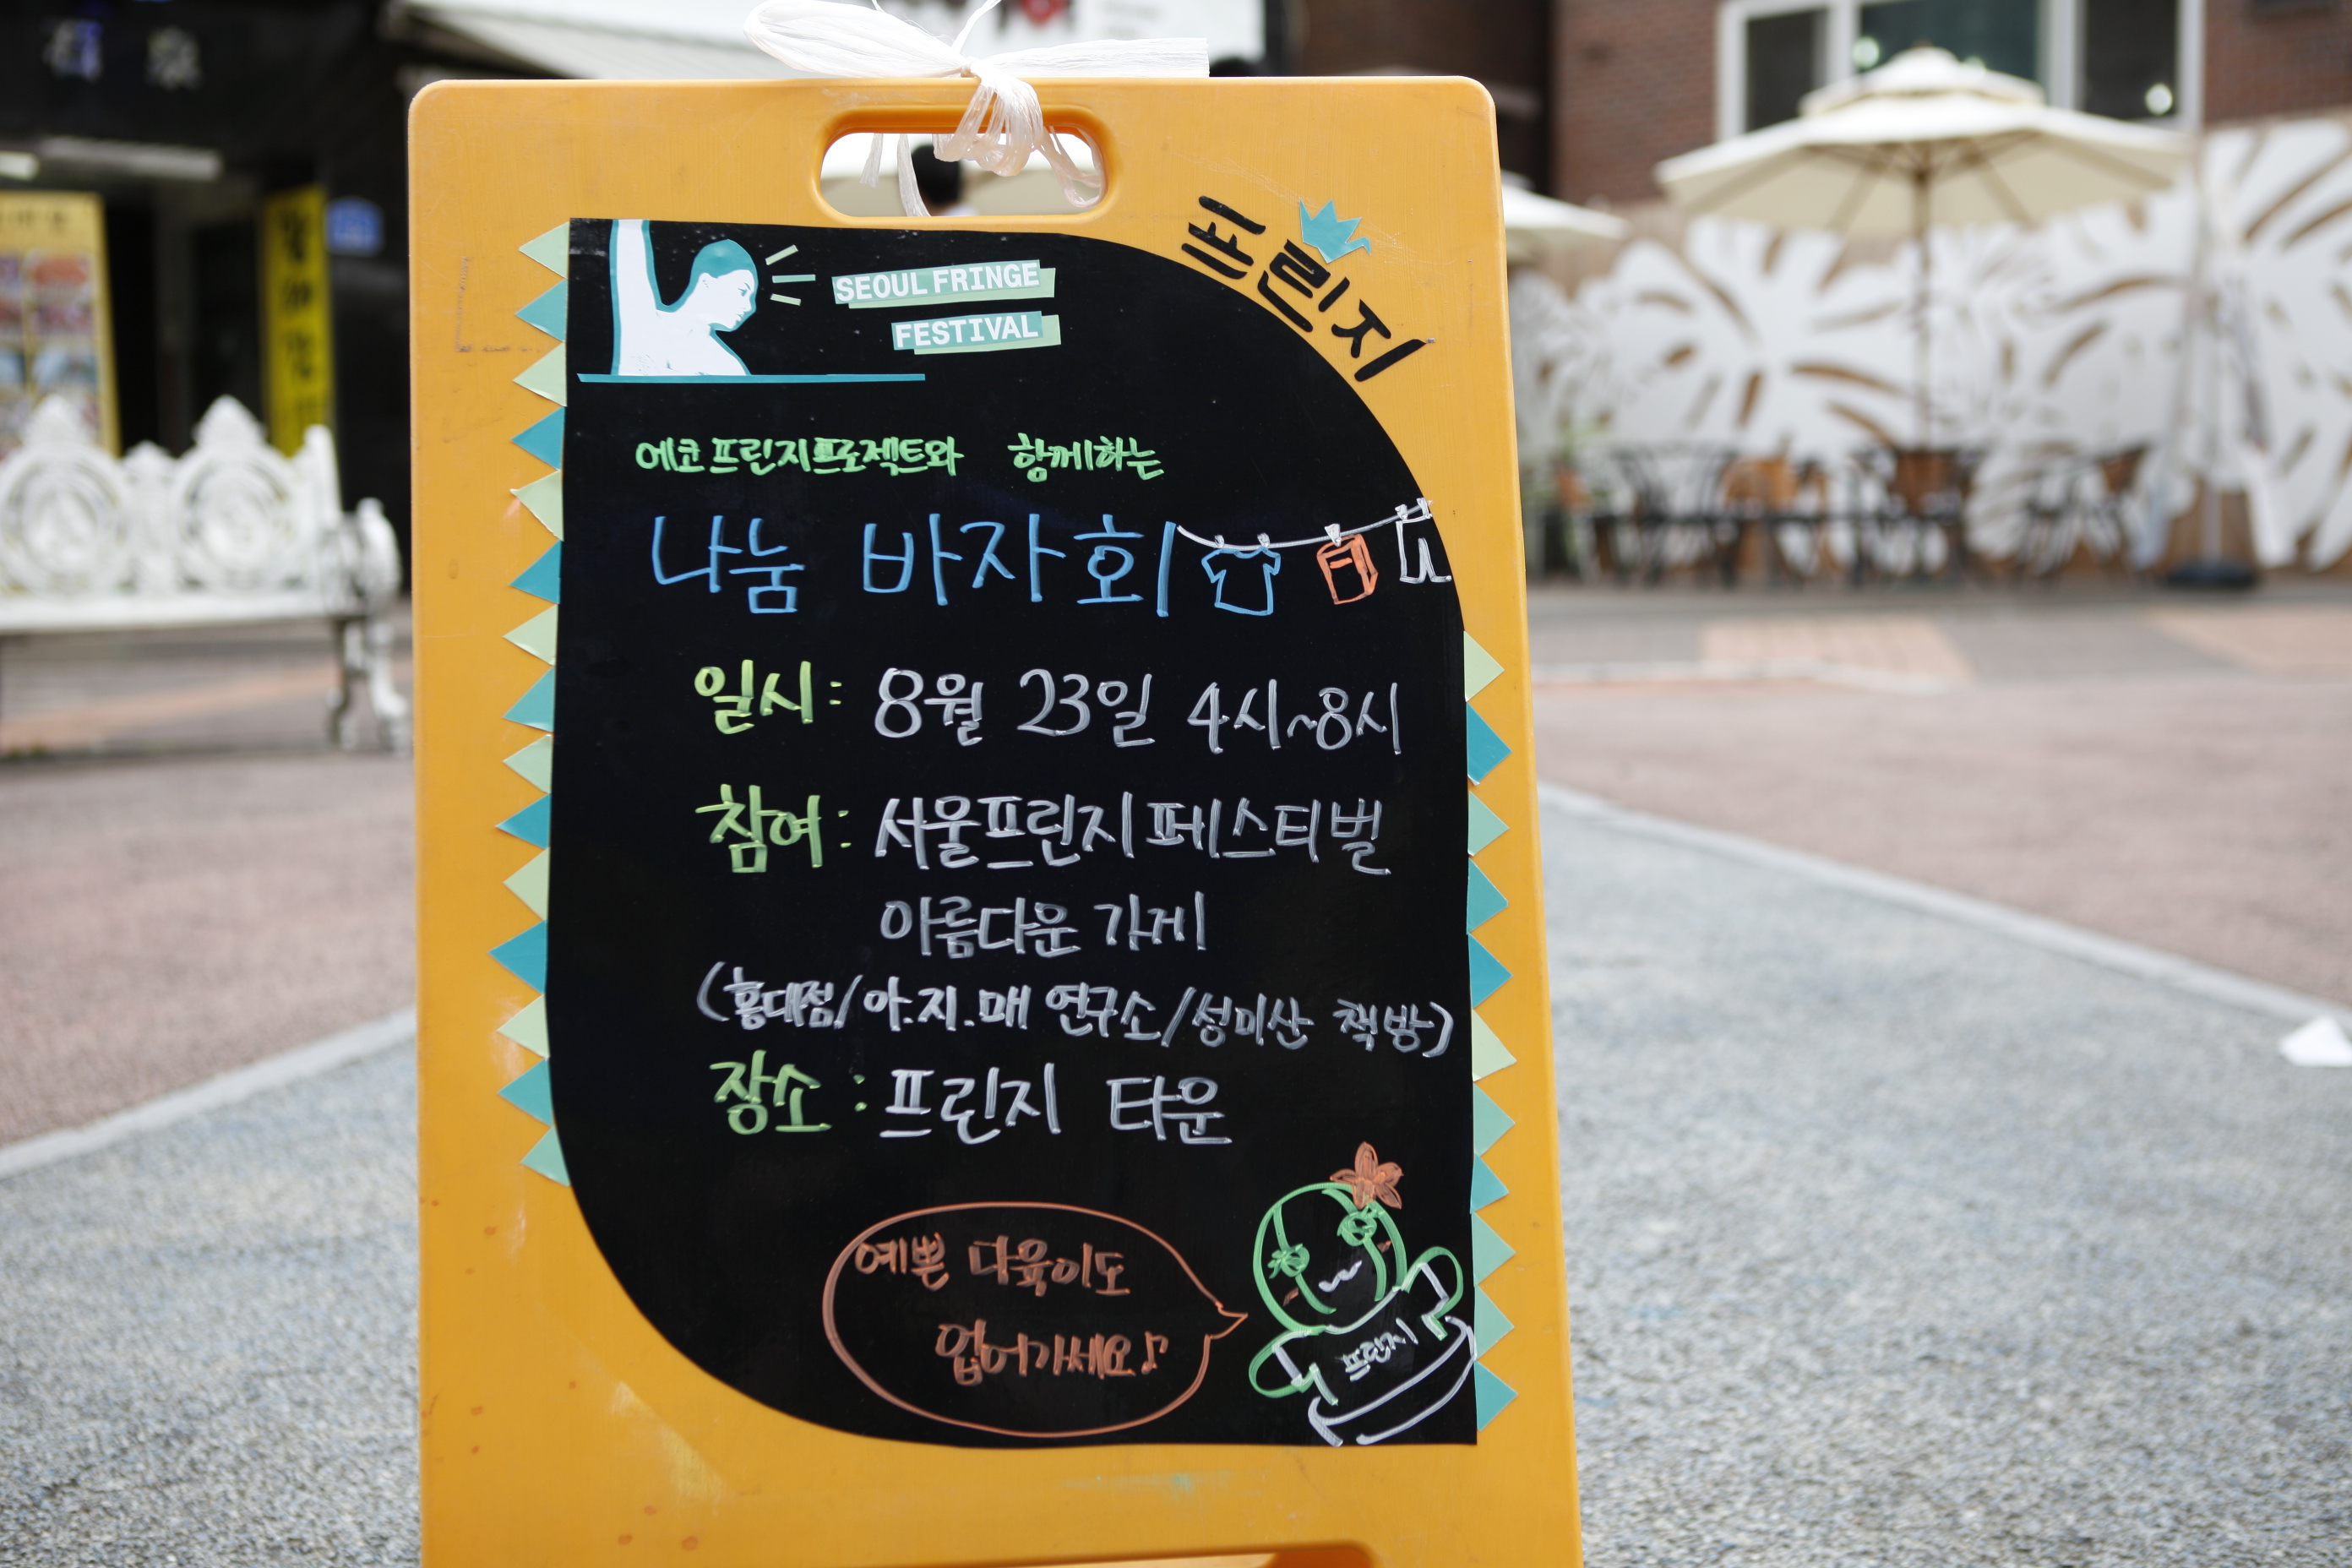 프린지
SEOUL FRINGE
FESTIVAL
에코프린지프로젝트와 함께하는
나눔 바자회
일시: 8월 23일 4시~8시
참여: 서울프린지페스티벌
아름다운 가게
(홍대점/아.지.매 연구소/성미산 책방)
장소: 프린지 타운
예쁜 다육이도
업어가세요♪
프린지